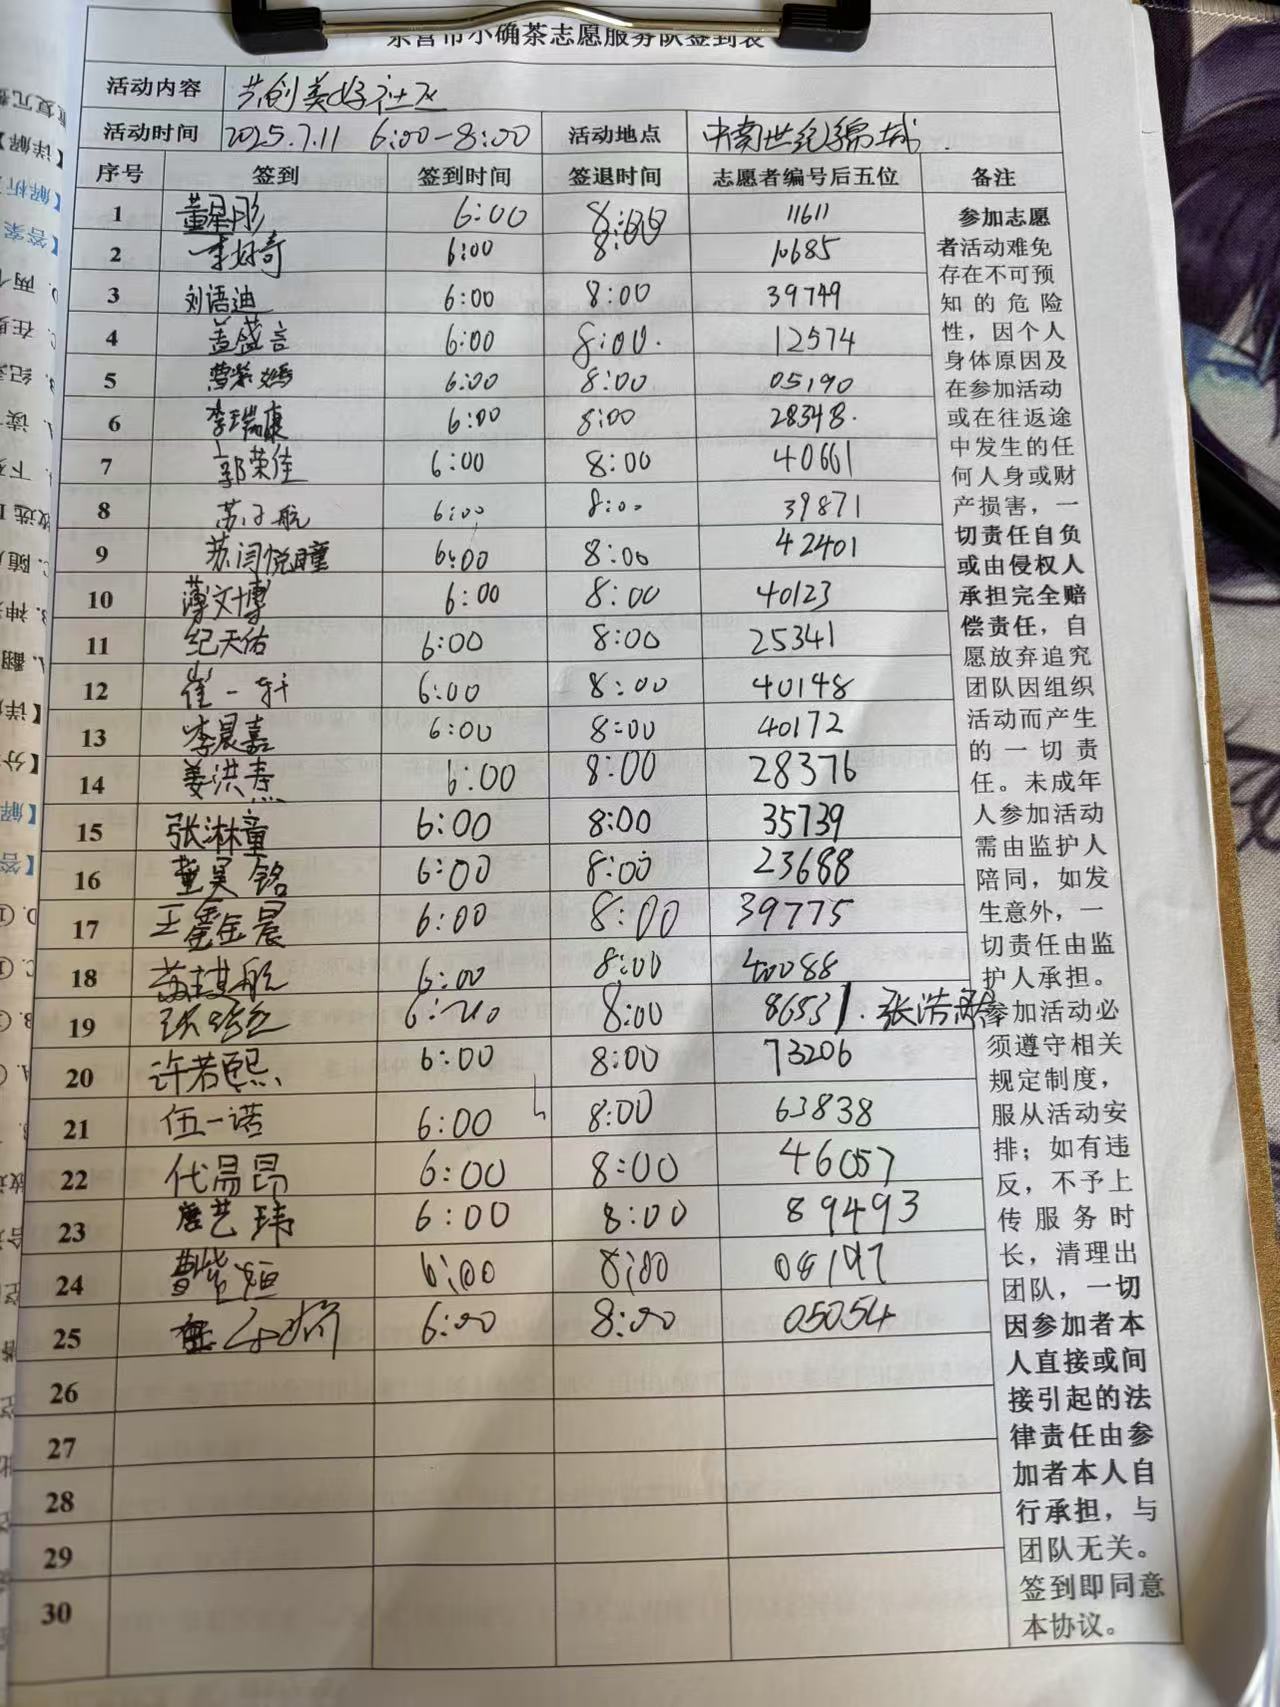 东营市小确茶志愿服务队签到表
活动内容 共创美好社区
活动时间 2025.7.11 6:00-8:00 活动地点 中南世纪锦城.
序号 签到 签到时间 签退时间 志愿者编号后五位 备注
1 董星彤 6:00 8:00 11611
2 李好奇 6:00 8:00 10685
3 刘语迪 6:00 8:00 39749
4 盖盛言 6:00 8:00. 12574
5 6:00 8:00 05190
6 李瑞康 6:00 8:00 28348.
7 郭荣佳 6:00 8:00 40661
8 苏子航 6:00 8:00 39871
9 苏闫悦瞳 6:00 8:00 42401
10 薄文博 6:00 8:00 40123
11 纪天佑 6:00 8:00 25341
12 崔一轩 6:00 8:00 40148
13 李晨嘉 6:00 8:00 40172
14 姜洪焘 6:00 8:00 28376
15 张淋童 6:00 8:00 35739
16 董昊铭 6:00 8:00 23688
17 王鑫晨 6:00 8:00 39775
18 苏祺航 6:00 8:00 40088
19 8:00 86531. 张浩
20 许若熙 6:00 8:00 73206
21 伍一诺 6:00 8:00 63838
22 代昌昂 6:00 8:00 46057
23 唐艺玮 6:00 8:00 89493
24 曹紫烜 6:00 8:00
25 6:00 8:00 05054
26
27
28
29
30
参加志愿
者活动难免
存在不可预
知的危险
性，因个人
身体原因及
在参加活动
或在往返途
中发生的任
何人身或财
产损害，一
切责任自负
或由侵权人
承担完全赔
偿责任，自
愿放弃追究
团队因组织
活动而产生
的一切责
任。未成年
人参加活动
需由监护人
陪同，如发
生意外，一
切责任由监
护人承担。
参加活动必
须遵守相关
规定制度，
服从活动安
排；如有违
反，不予上
传服务时
长，清理出
团队，一切
因参加者本
人直接或间
接引起的法
律责任由参
加者本人自
行承担，与
团队无关。
签到即同意
本协议。